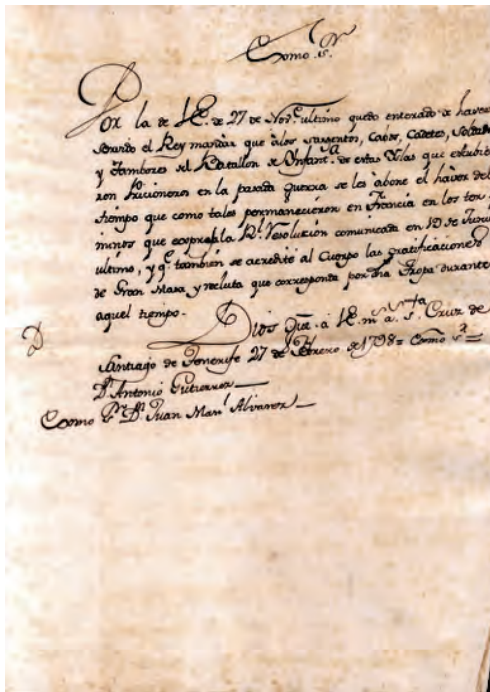 Exmo. Sr.
Por la de V.E. de 27 de Nov.e ultimo quedo enterado de haver
servido el Rey mandar que alos Sargentos, Cabos, Cadetes, Soldados
y Tambores del Batallon de Infant.a de estas Yslas que estubie
ron Pricioneros en la pasada guerra se les abone el haver del
tiempo que como tales permanecieron en Francia en los ter-
minos que expresa la R.l Resolución comunicada en 19 de Junio
ultimo, y q.e también se acredite al Cuerpo las gratificaciones
de Gran Masa y recluta que corresponda por dha Tropa durante
aquel tiempo.
Dios gue. a V.E. m.s a.s S.ta Cruz de
D
Santiago de Tenerife 27 de Febrero de 1798 = Exmo S.r =
D.n Antonio Gutierrez
Exmo S.r D.n Juan Man.l Alvarez